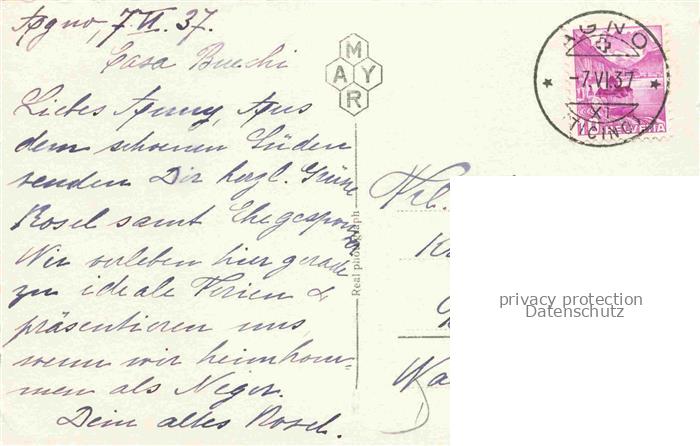 Agno, 7.VI.37.
Casa Buechi
Liebes Anny, Aus
dem schoenen Süden
senden Dir herzl. Grüsse
Rosel samt Ehegespons
Wir verleben hier gerade
zu ideale Ferien &
präsentieren uns
wenn wir heimkom-
men als Neger.
Dein altes Rosel.
MAYR
Real photograph
AGNO
-7.VI.37
XI
(TICINO)
HELVETIA
Frl.
privacy protection
Datenschutz